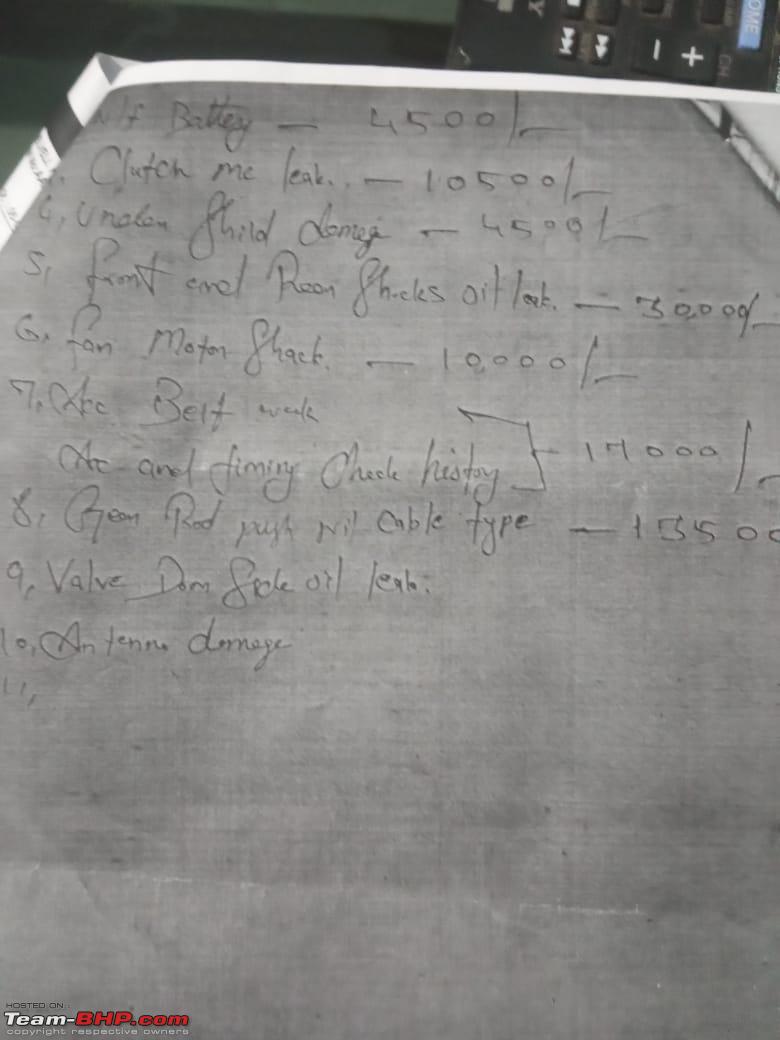 HOME
CH
Battery — 4500/-
Clutch mc leak. — 10500/-
4, Under Shild damage — 4500/-
5, front and Rear Shocks oil leak. — 30,000/-
6, fan Motor Shack. — 10,000/-
7, Acc Belt weak
Ac and timing Check history } 17000/-
8, Gear Rod cable type — 13500
9, Valve Side oil leak.
10, Antenna damage
11,
HOSTED ON :
Team-BHP.com
copyright respective owners